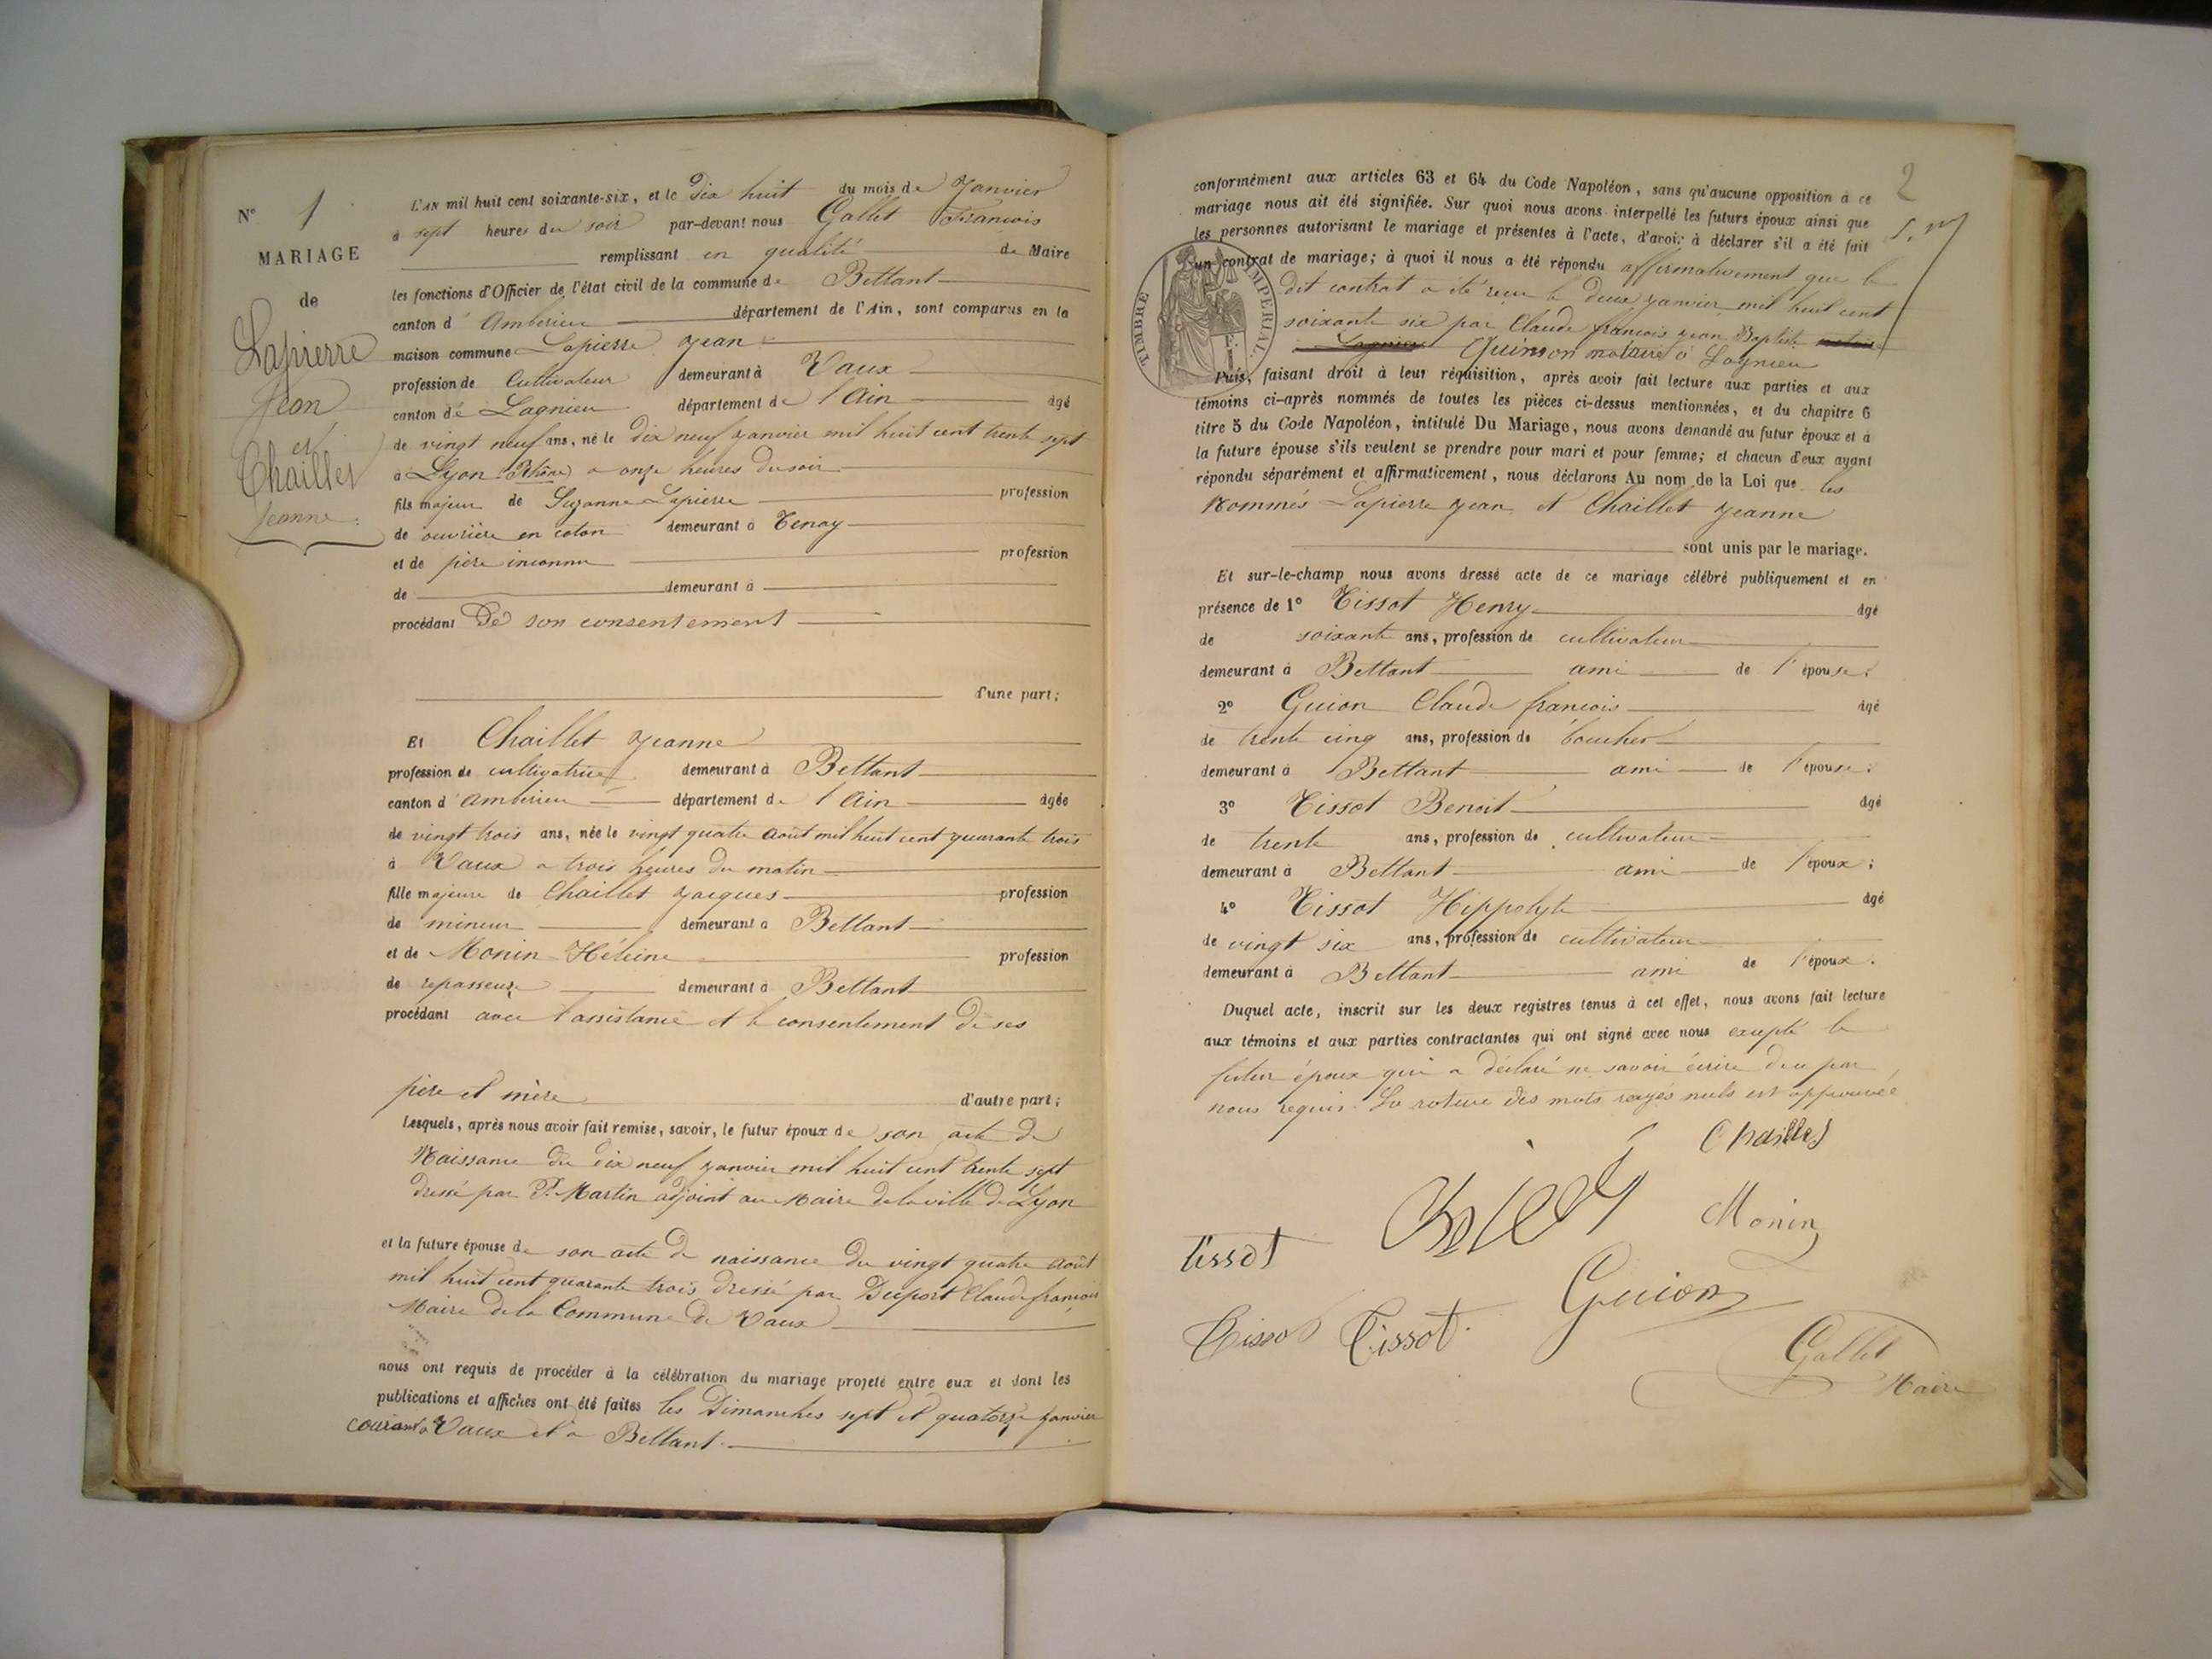 N° 1
MARIAGE
de
Lapierre
Jean
et
Chaillet
Jeanne.
L'AN mil huit cent soixante-six, et le Dix huit du mois de Janvier
à sept heures du soir par-devant nous Gallet François
remplissant en qualité de Maire
les fonctions d'Officier de l'état civil de la commune de Bettant
canton d'Ambérieu département de l'Ain, sont comparus en la
maison commune Lapierre Jean
profession de Cultivateur demeurant à Vaux
canton de Lagnieu département de l'Ain âgé
de vingt neuf ans, né le Dix neuf Janvier mil huit cent trente sept
à Lyon (Rhône) à onze heures du soir
fils majeur de Suzanne Lapierre profession
de ouvrière en coton demeurant à Tenay
et de père inconnu profession
de demeurant à
procédant De son consentement
d'une part;
Et Chaillet Jeanne
profession de cultivatrice demeurant à Bettant
canton d'Ambérieu département de l'Ain âgée
de vingt trois ans, née le vingt quatre Août mil huit cent quarante trois
à Vaux à trois heures du matin
fille majeure de Chaillet Jacques profession
de mineur demeurant à Bettant
et de Monin Héleine profession
de repasseuse demeurant à Bettant
procédant avec l'assistance et le consentement de ses
père et mère d'autre part;
Lesquels, après nous avoir fait remise, savoir, le futur époux de son acte de
Naissance du dix neuf Janvier mil huit cent trente sept
dressé par P. Martin adjoint au Maire de la ville de Lyon
et la future épouse de son acte de naissance du vingt quatre Août
mil huit cent quarante trois dressé par Duport Claude françois
Maire de la Commune de Vaux
nous ont requis de procéder à la célébration du mariage projeté entre eux et dont les
publications et affiches ont été faites les Dimanches sept et quatorze Janvier
courant à Vaux et à Bettant
2
conformément aux articles 63 et 64 du Code Napoléon, sans qu'aucune opposition à ce
mariage nous ait été signifiée. Sur quoi nous avons interpellé les futurs époux ainsi que
les personnes autorisant le mariage et présentes à l'acte, d'avoir à déclarer s'il a été fait
un contrat de mariage; à quoi il nous a été répondu affirmativement que le
dit contrat a été reçu le deux Janvier mil huit cent
soixante six par Claude françois Jean Baptiste notaire
Lagnieu Quinson notaire à Lagnieu
TIMBRE IMPÉRIAL
Puis, faisant droit à leur réquisition, après avoir fait lecture aux parties et aux
témoins ci-après nommés de toutes les pièces ci-dessus mentionnées, et du chapitre 6
titre 5 du Code Napoléon, intitulé Du Mariage, nous avons demandé au futur époux et à
la future épouse s'ils veulent se prendre pour mari et pour femme; et chacun d'eux ayant
répondu séparément et affirmativement, nous déclarons Au nom de la Loi que les
Nommés Lapierre Jean et Chaillet Jeanne
sont unis par le mariage.
Et sur-le-champ nous avons dressé acte de ce mariage célébré publiquement et en
présence de 1° Tissot Henry âgé
de soixante ans, profession de cultivateur
demeurant à Bettant ami de l'épouse;
2° Guion Claude françois âgé
de trente cinq ans, profession de boucher
demeurant à Bettant ami de l'épouse;
3° Tissot Benoit âgé
de trente ans, profession de cultivateur
demeurant à Bettant ami de l'époux;
4° Tissot Hippolyte âgé
de vingt six ans, profession de cultivateur
demeurant à Bettant ami de l'époux.
Duquel acte, inscrit sur les deux registres tenus à cet effet, nous avons fait lecture
aux témoins et aux parties contractantes qui ont signé avec nous excepté le
futur époux qui a déclaré ne savoir écrire de ce par
nous requis. La rature des mots rayés nuls est approuvée
Chaillet
Monin
Tissot
Guion
Tissot Tissot
Gallet
Maire